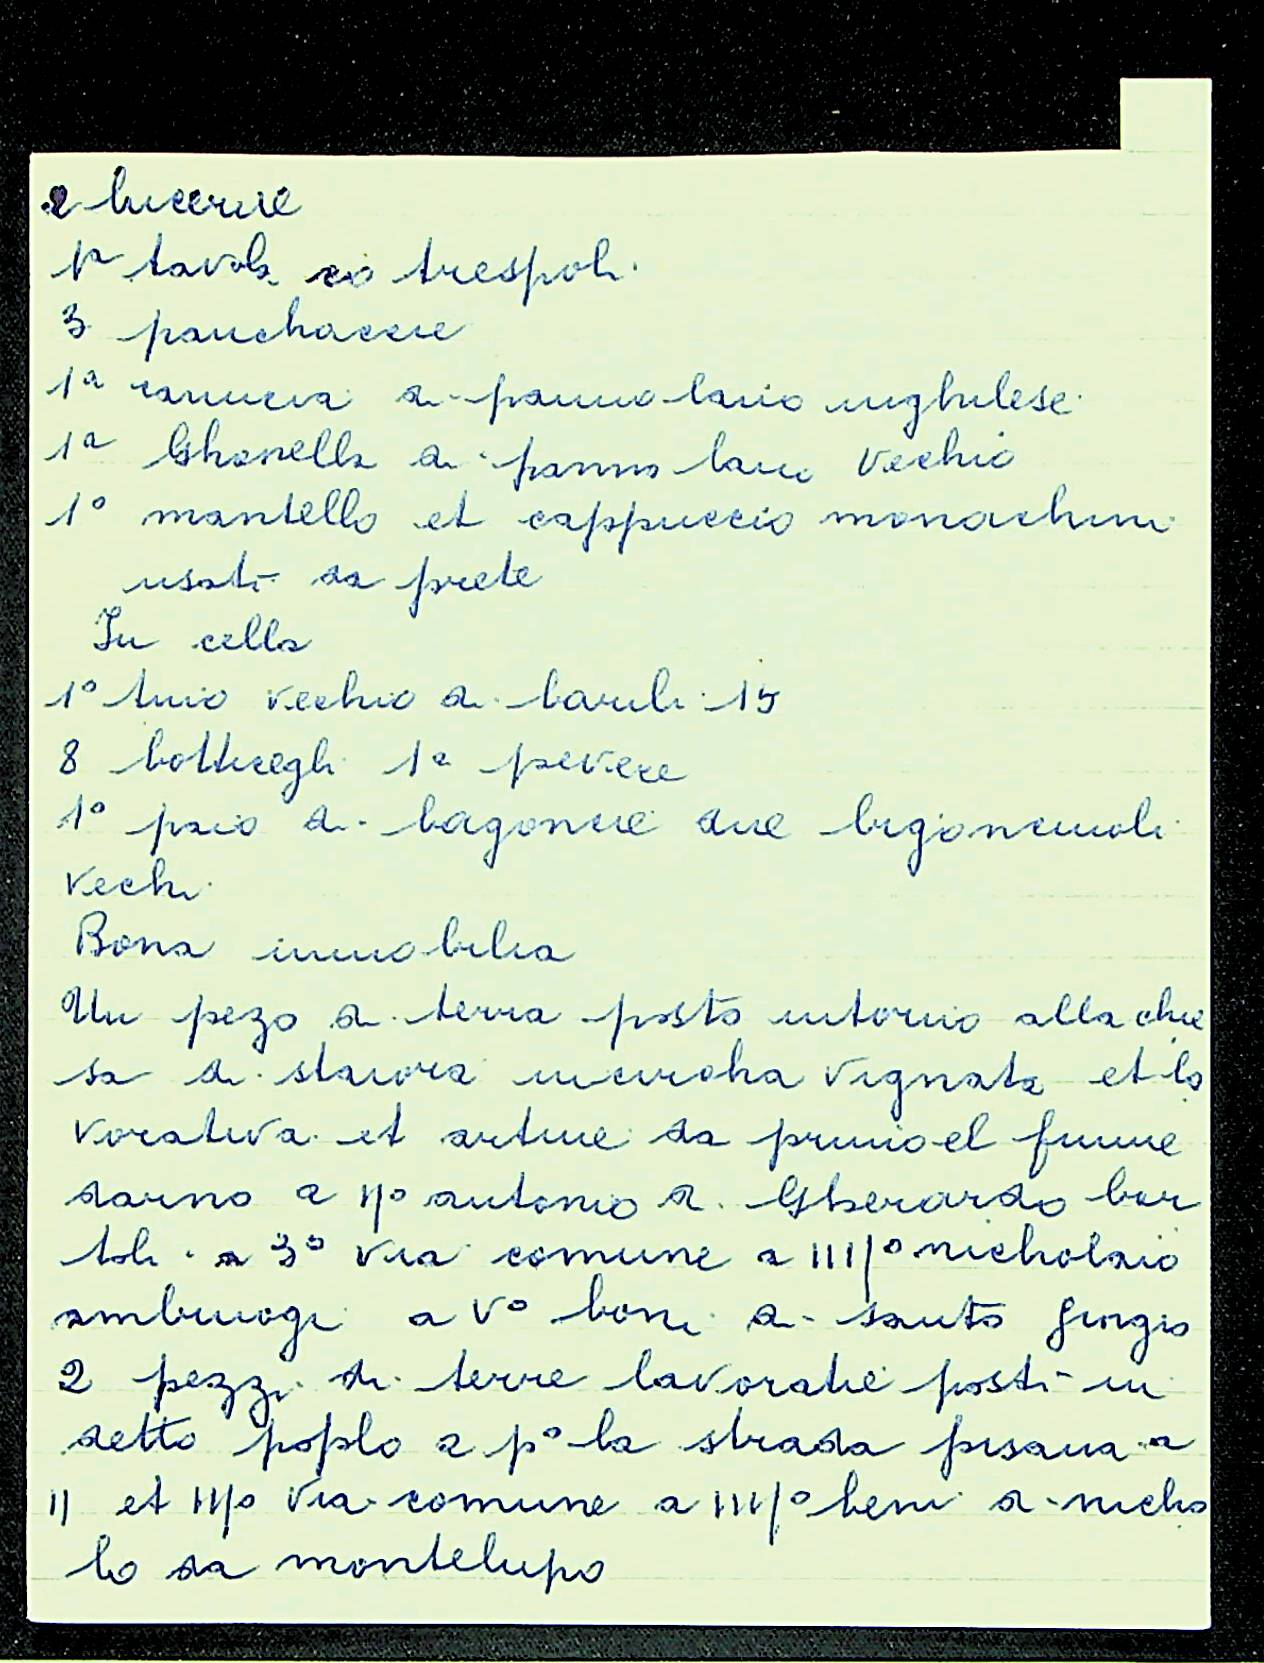 2 lucerne
1a tavola co trespoli
3 panchacce
1a camicia di panno lano inghilese
1a Ghonella di panno lano vechio
1º mantello et cappuccio monachini
usati da prete
In cella
1º tino vechio di barili 15
8 botticegli 1a pevere
1º paio di bagoncie due bigonciuoli
vechi
Bona immobilia
Un pezo di terra posto intorno alla chie
sa di starora vignata et la
vorativa et da primo el fiume
darno a IIº antonio di Gherardo bar
toli a 3º via comune a IIIIº nicholaio
ambruogi a Vº beni di santo Giorgio
2 pezzi di terre lavoratie posti in
detto poplo a pº la strada pisana a
II et IIIº via comune a IIIIº beni di nicho
lo da montelupo